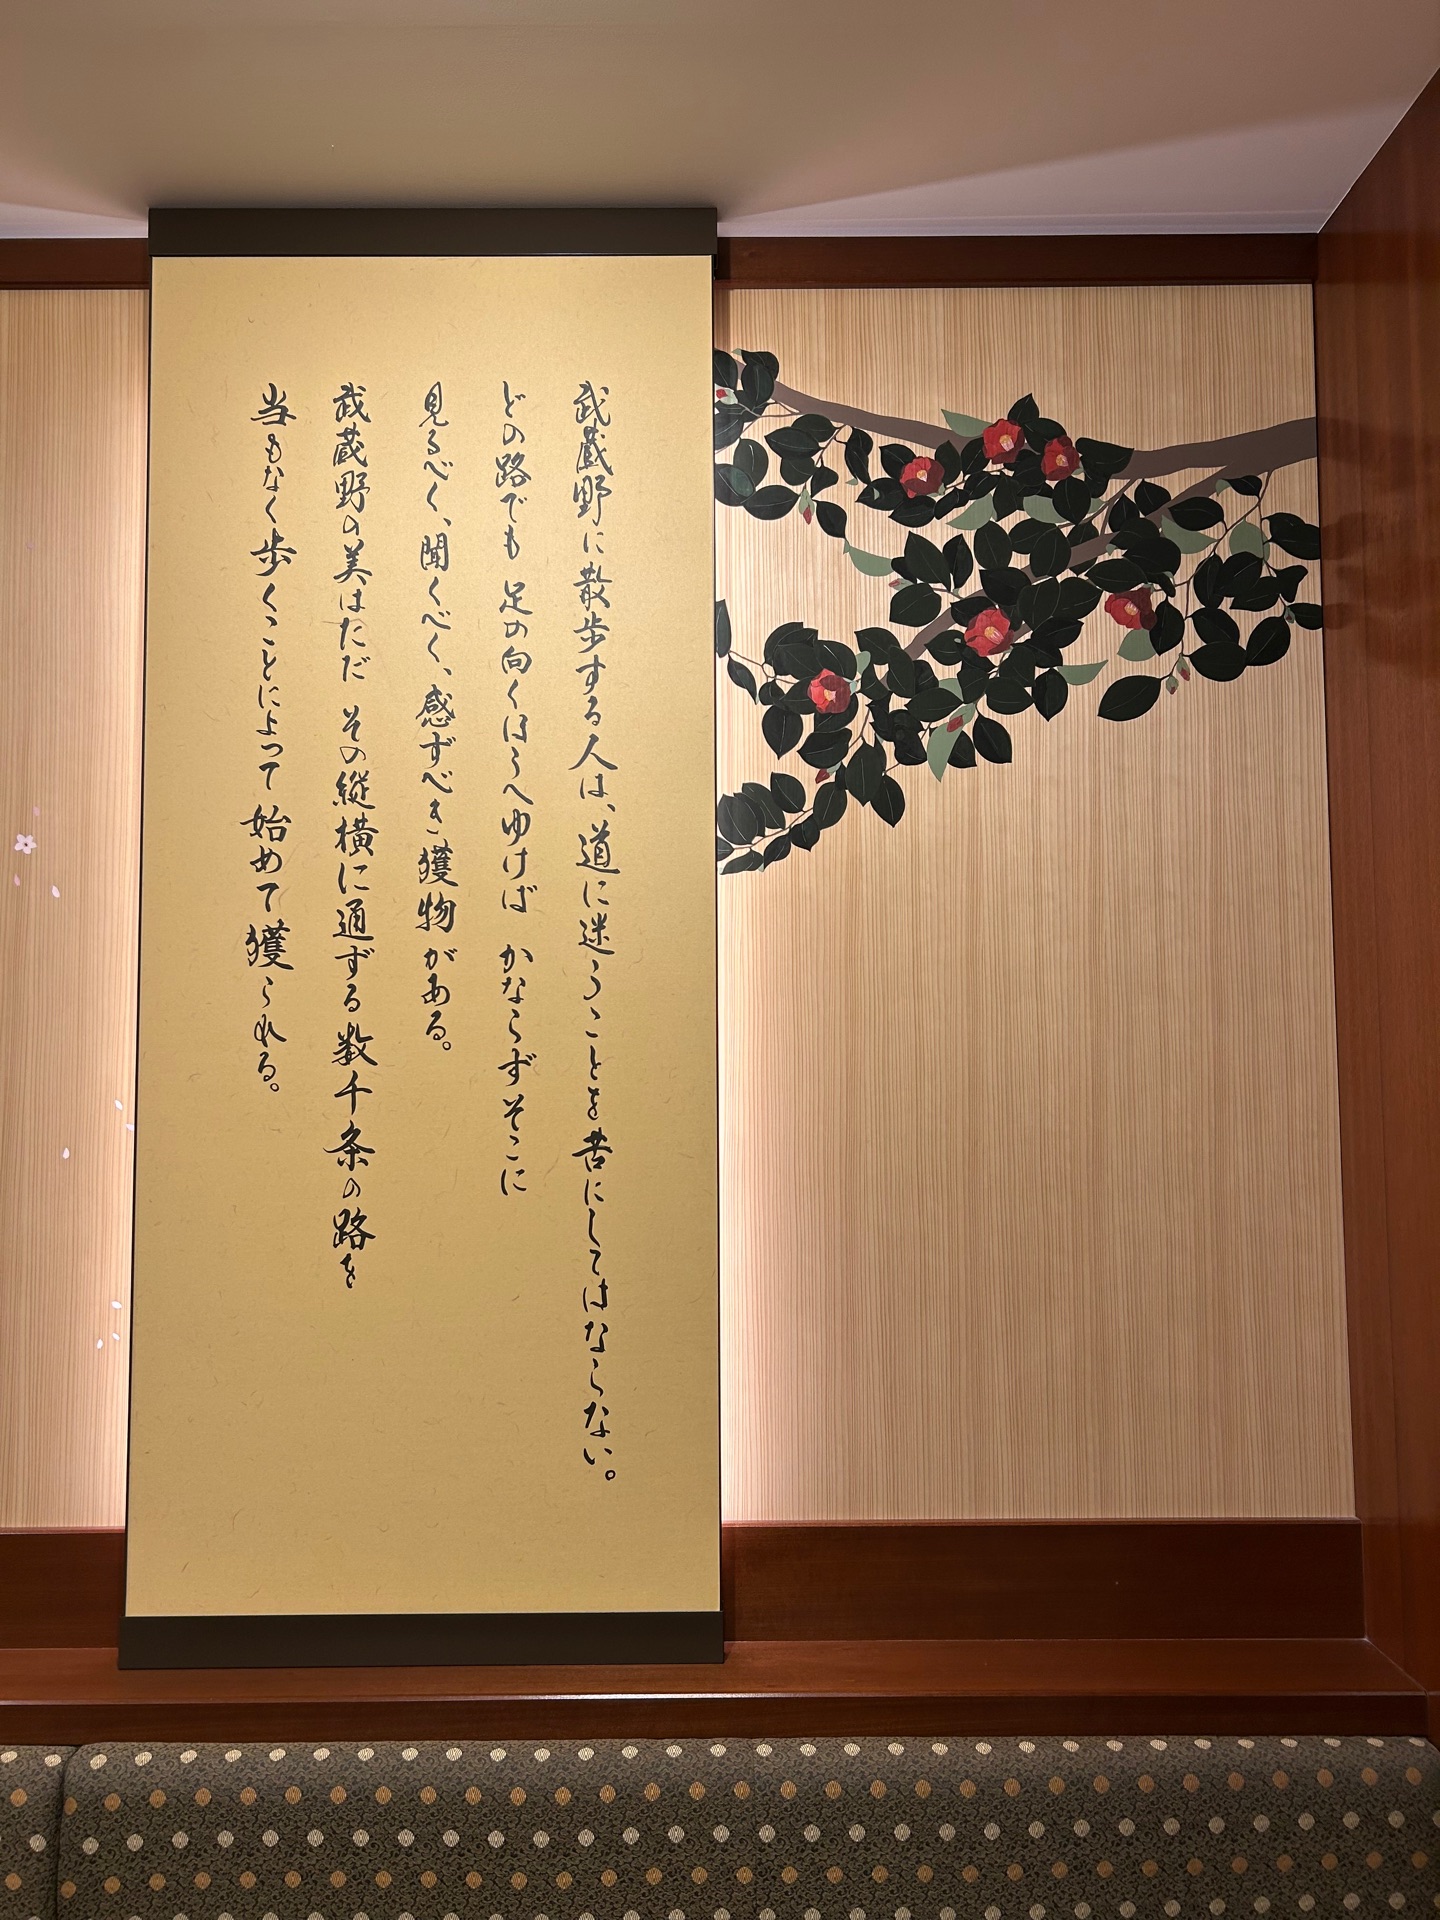 武蔵野に散歩する人は、道に迷うことを苦にしてはならない。
どの路でも足の向くほうへゆけばかならずそこに
見るべく、聞くべく、感ずべき獲物がある。
武蔵野の美はただその縦横に通ずる数千条の路を
当もなく歩くことによって始めて獲られる。